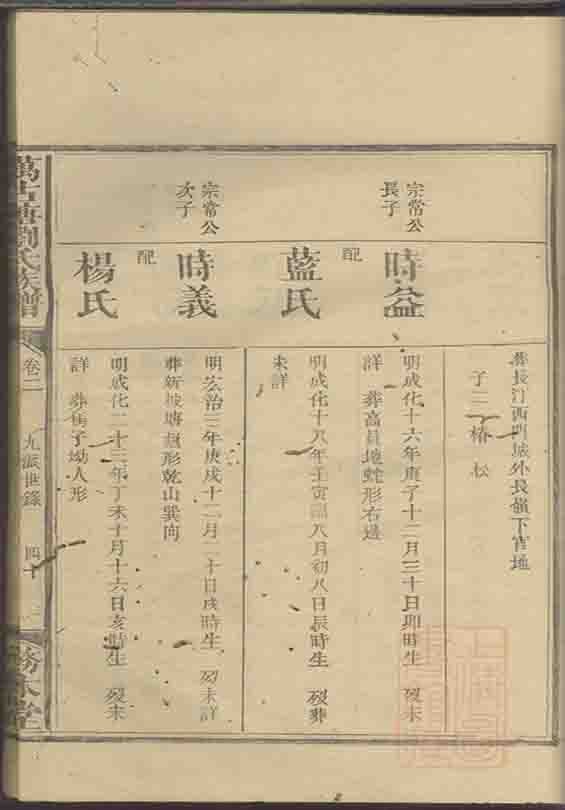 葬長汀西門城外長嶺下官地
子二 椿 松
宗常公
長子
時益
明成化十六年庚子十二月三十日卯時生 歿未
詳 葬高員地蛇形右邊
配
藍氏
明成化十八年壬寅 八月初八日辰時生 歿葬
未詳
宗常公
次子
時義
明宏治三年庚戌十二月二十日戌時生 歿未詳
葬新坡塘 形乾山巽向
配
楊氏
明成化二十三年丁未十月十六日亥時生 歿未
詳 葬 子坳人形
萬 塘劉氏族譜
卷二
九派世錄
四十
敦本堂